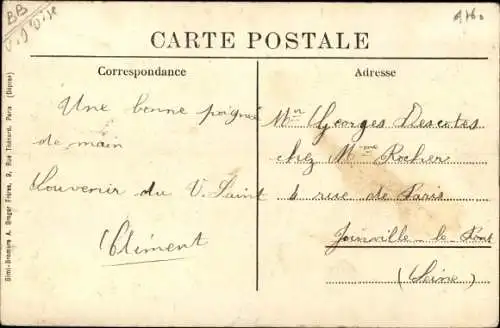 BB
V. d'Oise
CARTE POSTALE
Correspondance
Une bonne poignée
de main
Souvenir du V. Saint
Clément
Adresse
Mn Georges Descotes
chez Mme Rocher
6 rue de Paris
Joinville-le-Pont
(Seine)
Simi-Bromure A. Breger Frères, 9, Rue Thénard, Paris (Dépose)